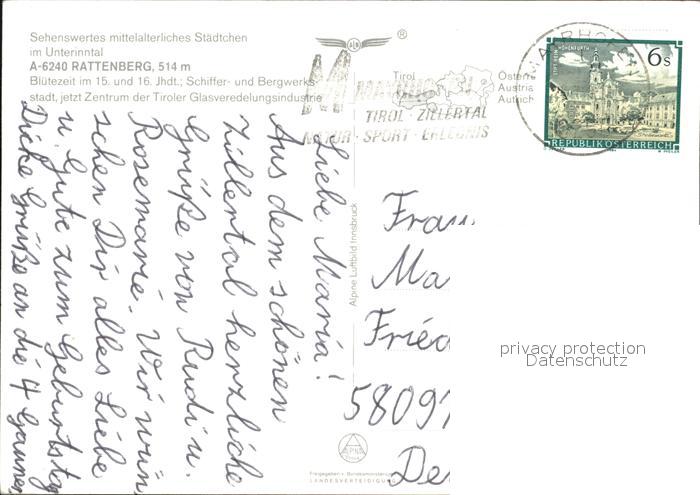 Sehenswertes mittelalterliches Städtchen
im Unterinntal
A-6240 RATTENBERG, 514 m
Blütezeit im 15. und 16. Jhdt.; Schiffer- und Bergwerks-
stadt, jetzt Zentrum der Tiroler Glasveredelungsindustrie
®
Tirol
Österre
Austria
Autrich
TIROL · ZILLERTAL
NATUR · SPORT · ERLEBNIS
6 S
REPUBLIK ÖSTERREICH
Liebe Maria!
Aus dem schönen
Zillertal herzliche
Grüße von Rudi u.
Rosemarie. Wir wün
schen Dir alles Liebe
u. Gute zum Geburtstag
Dicke Grüße an die 4 Gauner
Alpine Luftbild Innsbruck
Frau
Ma
Fried
58091
De
privacy protection
Datenschutz
Freigegeben v. Bundesministerium
LANDESVERTEIDIGUNG